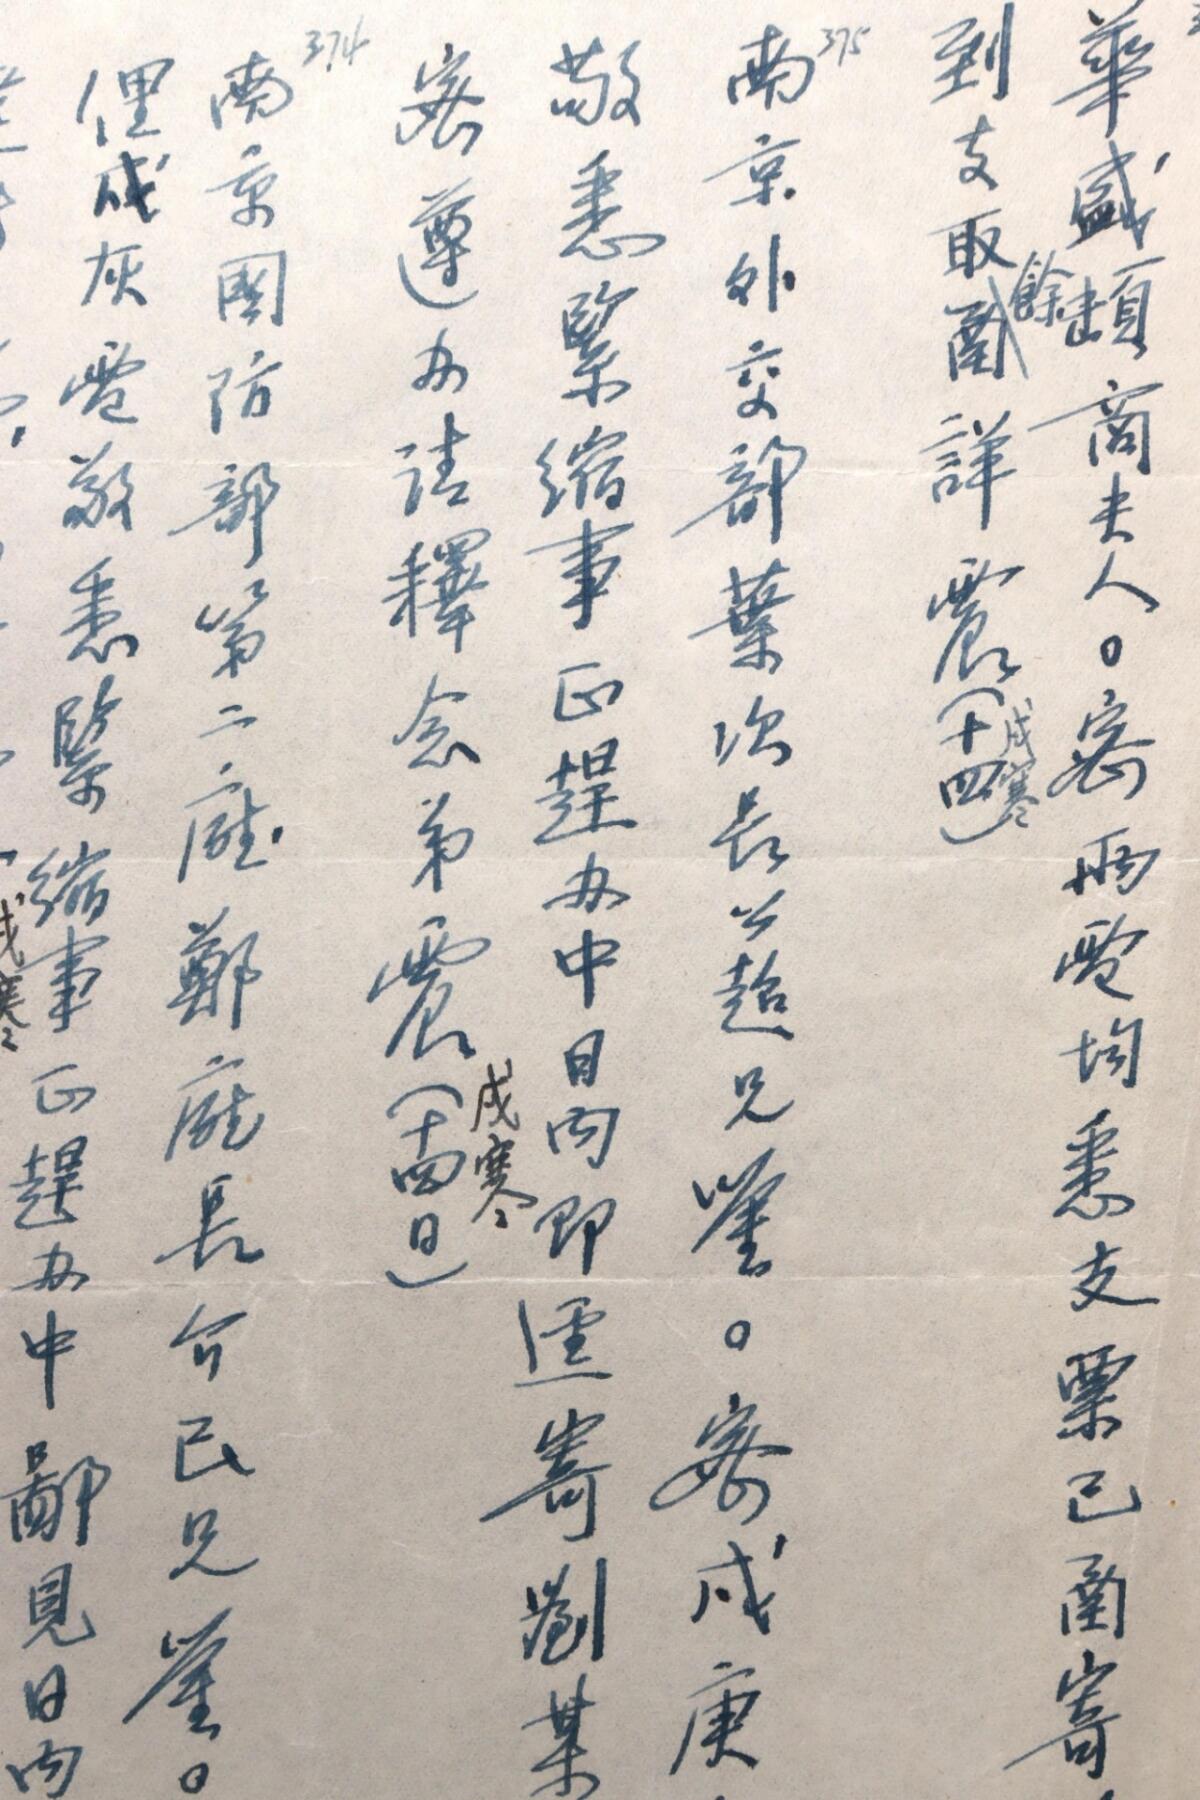 華盛頓商夫人。密兩電均悉支票已函寄
到支取餘詳震(十四)
戌寒
375
南京外交部葉次長公超兄鑒。密戌庚
敬悉緊縮事正趕办中日內即逕寄劉某
密遵办請釋念弟震(十四日)
戌寒
374
南京國防部第二廳鄭廳長介民兄鑒。
俚戌灰電敬悉緊縮事正趕办中鄙見日內
戌寒